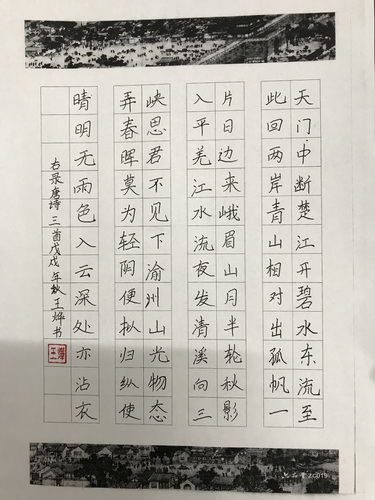 天门中断楚江开碧水东流至
此回两岸青山相对出孤帆一
片日边来峨眉山月半轮秋影
入平羌江水流夜发清溪向三
峡思君不见下渝州山光物态
弄春晖莫为轻阴便拟归纵使
晴明无雨色入云深处亦沾衣
右录唐诗三首戊戌年秋王烨书
ZG019